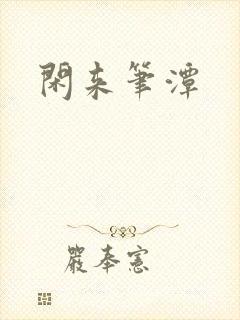 閑来筆潭
嚴奉憲